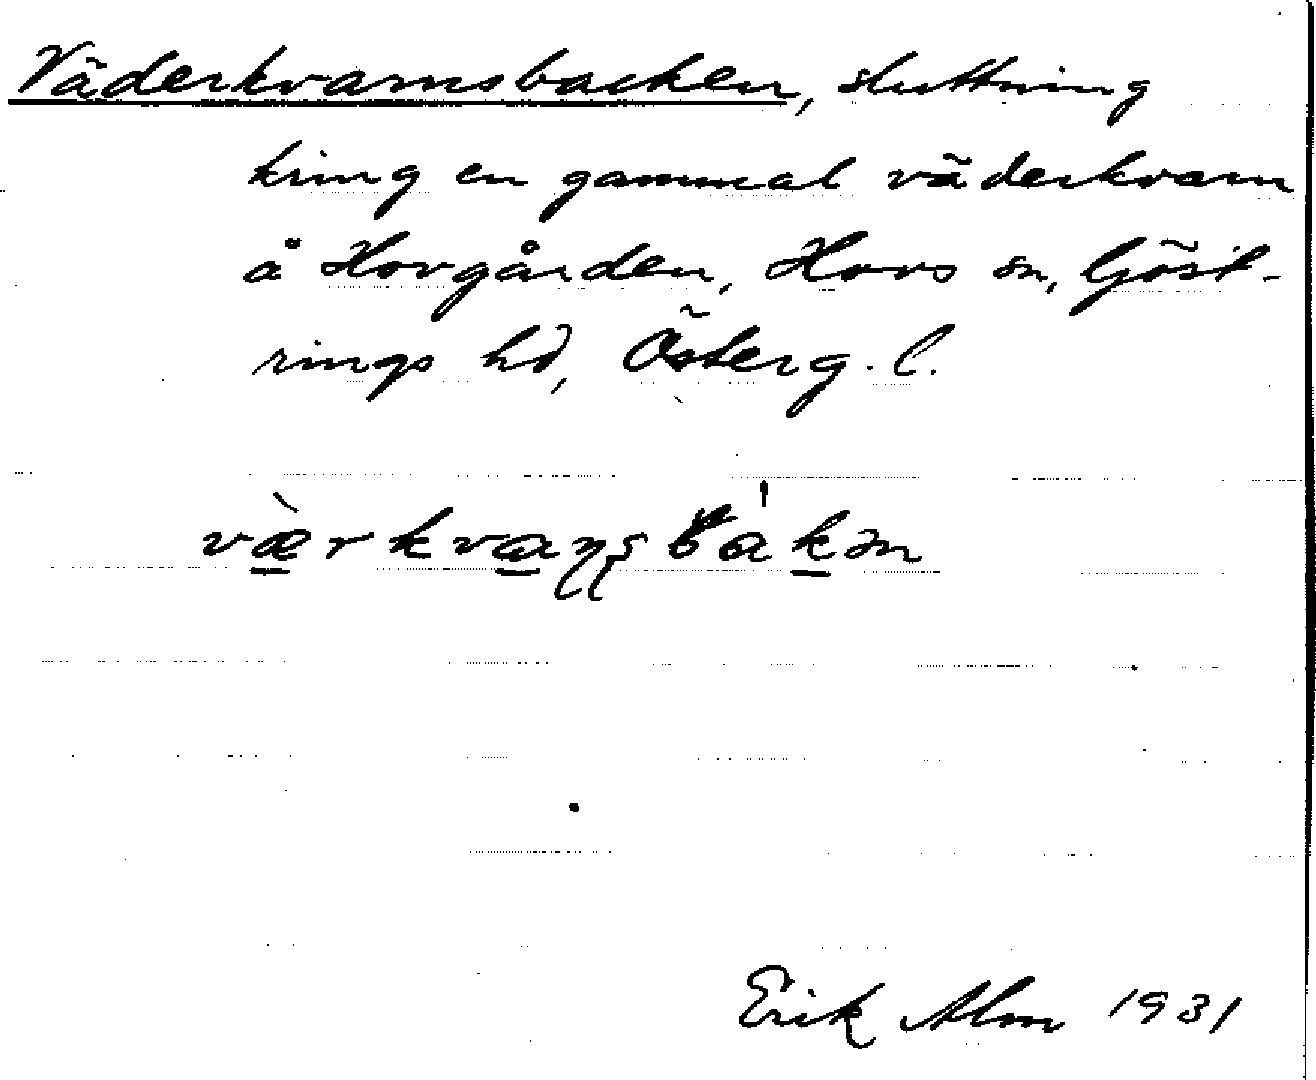 Väderkvarnsbacken, sluttning
kring en gammal väderkvarn
å Hovgården, Hovs sn, Göst-
rings hd, Österg. l.
væ̀rkvaɳʂbákən
Erik Alm 1931